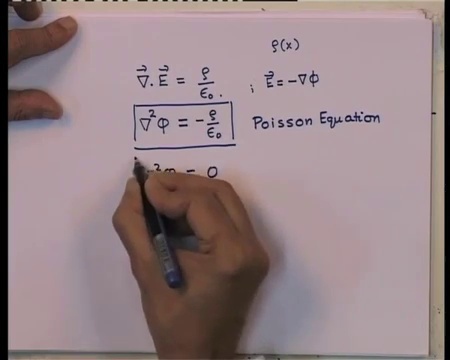 ρ(x)
∇⃗ . E⃗ = ρ/ε₀ . ; E⃗ = −∇Φ
∇²Φ = − ρ/ε₀ Poisson Equation
²Φ = 0